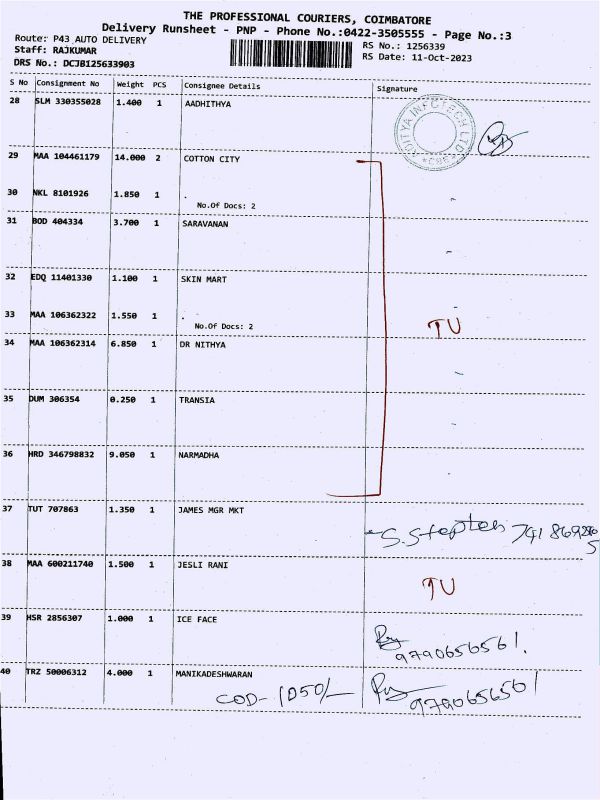 THE PROFESSIONAL COURIERS, COIMBATORE
Delivery Runsheet - PNP - Phone No.:0422-3505555 - Page No.:3
Route: P43 AUTO DELIVERY
Staff: RAJKUMAR
DRS No.: DCJB125633903
RS No.: 1256339
RS Date: 11-Oct-2023
S No Consignment No Weight PCS Consignee Details Signature
28 SLM 330355028 1.400 1 AADHITHYA
ADITYA INFOTECH LTD
CBE
29 MAA 104461179 14.000 2 COTTON CITY
30 NKL 8101926 1.850 1 .
No.Of Docs: 2
31 BOD 404334 3.700 1 SARAVANAN
32 EDQ 11401330 1.100 1 SKIN MART
33 MAA 106362322 1.550 1 .
No.Of Docs: 2
TU
34 MAA 106362314 6.850 1 DR NITHYA
35 DUM 306354 0.250 1 TRANSIA
36 HRD 346798832 9.050 1 NARMADHA
37 TUT 707863 1.350 1 JAMES MGR MKT
S. Stephen
38 MAA 600211740 1.500 1 JESLI RANI
TU
39 HSR 2856307 1.000 1 ICE FACE
9790656561.
40 TRZ 50006312 4.000 1 MANIKADESHWARAN
COD- 1050/-
9790656561